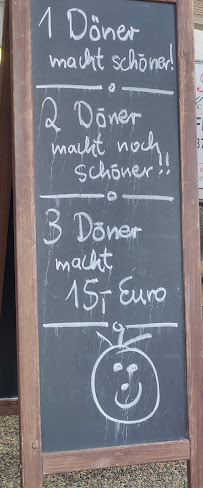 1 Döner
macht schöner!
2 Döner
macht noch
schöner!!
3 Döner
macht
15,- Euro